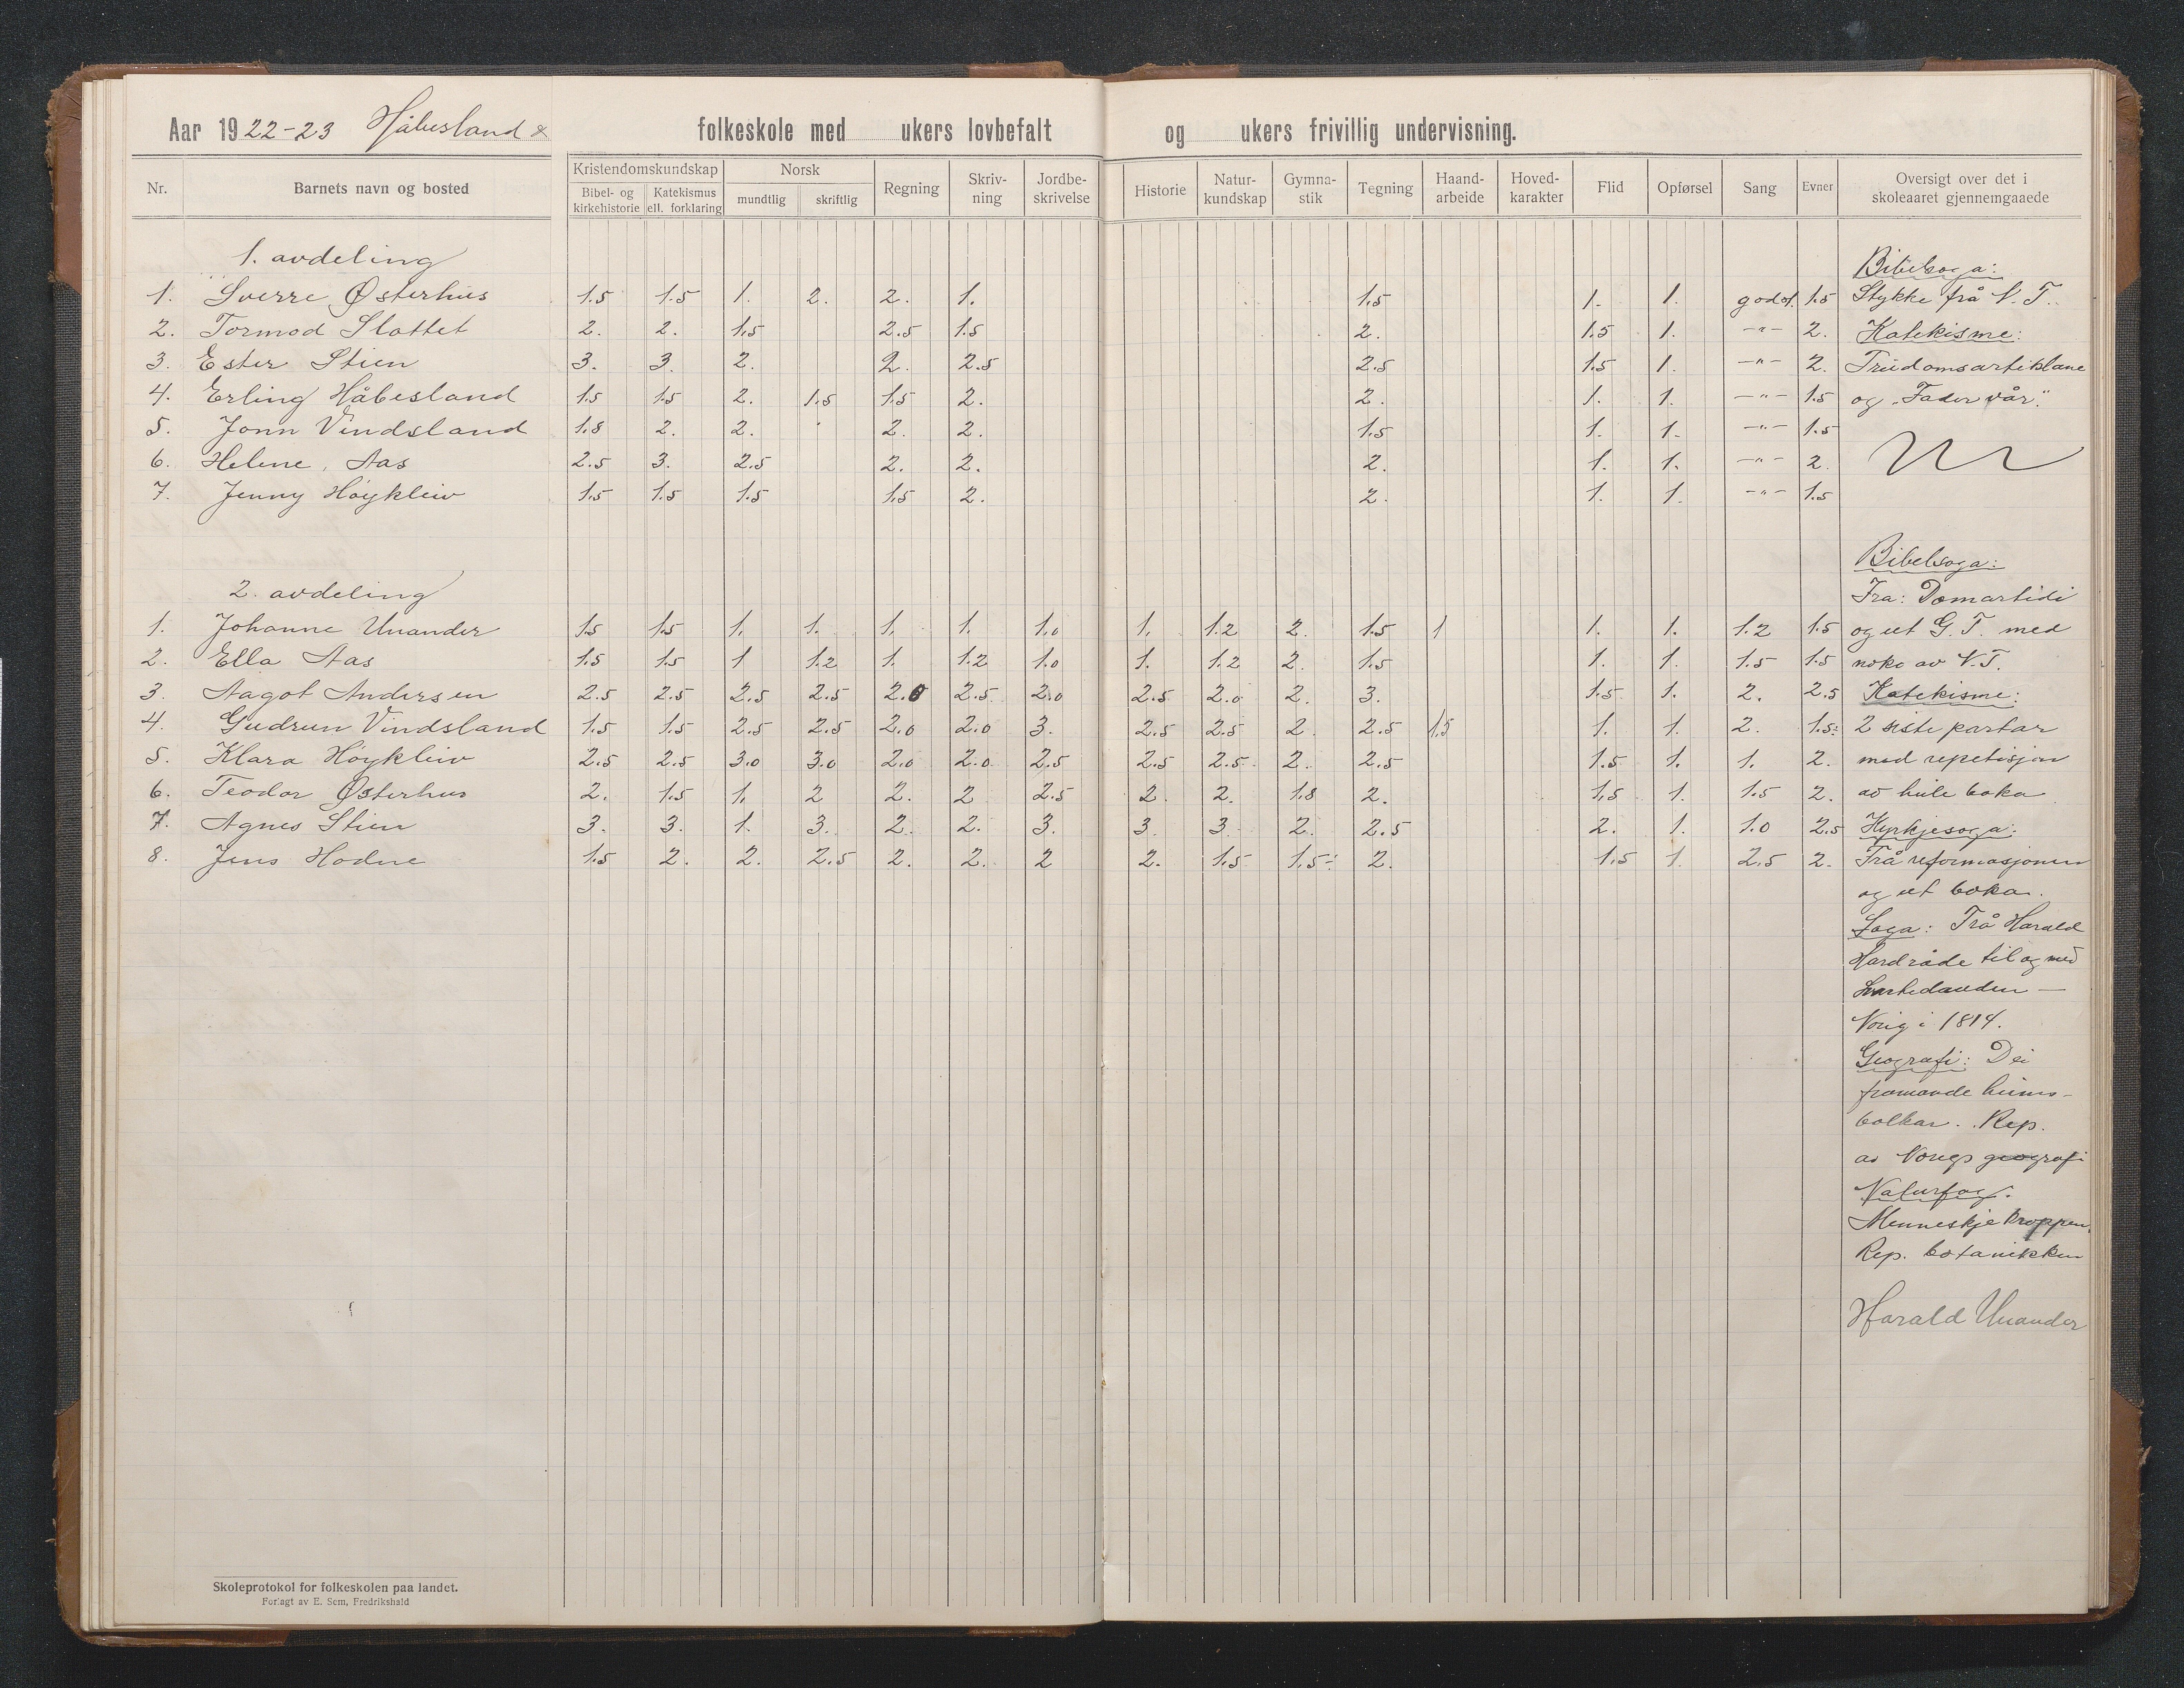 Aar 1922-23 Håbesland folkeskole med ukers lovbefalt og ukers frivillig undervisning.
Nr. Barnets navn og bosted Kristendomskundskap Norsk Regning Skriv-ning Jordbe-skrivelse Historie Natur-kundskap Gymna-stik Tegning Haand-arbeide Hoved-karakter Flid Opførsel Sang Evner Oversigt over det i skoleaaret gjennemgaaede
Bibel- og kirkehistorie Katekismus ell. forklaring mundtlig skriftlig
1. avdeling Bibelsoga:
1. Sverre Østerhus 1.5 1.5 1. 2. 2. 1. 1.5 1. 1. godt. 1.5 Stykke frå N. T.
2. Tormod Slottet 2. 2. 1.5 2.5 1.5 2. 1.5 1. -"- 2. Katekisme:
3. Ester Stien 3. 3. 2. 2. 2.5 2.5 1.5 1. -"- 2. Trudomsartiklane
4. Erling Håbesland 1.5 1.5 2. 1.5 1.5 2. 2. 1. 1. -"- 1.5 og "Fader vår".
5. Jonn Vindsland 1.8 2. 2. 2. 2. 1.5 1. 1. -"- 1.5
6. Helene Aas 2.5 3. 2.5 2. 2. 2. 1. 1. -"- 2.
7. Jenny Høykleiv 1.5 1.5 1.5 1.5 2. 2. 1. 1. -"- 1.5
Bibelsoga:
2. avdeling Fra: Domartidi
1. Johanne Unander 1.5 1.5 1. 1. 1. 1. 1.0 1. 1.2 2. 1.5 1 1. 1. 1.2 1.5 og ut G. T. med
2. Ella Aas 1.5 1.5 1 1.2 1. 1.2 1.0 1. 1.2 2. 1.5 1. 1. 1.5 1.5 noko av N. T.
3. Aagot Andersen 2.5 2.5 2.5 2.5 2.0 2.5 2.0 2.5 2.0 2. 3. 1.5 1. 2. 2.5 Katekisme:
4. Gudrun Vindsland 1.5 1.5 2.5 2.5 2.0 2.0 3. 2.5 2.5 2 2.5 1.5 1. 1. 2. 1.5: 2 siste partar
5. Klara Høykleiv 2.5 2.5 3.0 3.0 2.0 2.0 2.5 2.5 2.5 2. 2.5 1.5 1. 1. 2. med repetisjon
6. Teodor Østerhus 2. 1.5 1. 2 2. 2 2.5 2. 2. 1.8 2. 1.5 1. 1.5 2. av heile boka
7. Agnes Stien 3. 3. 1. 3. 2. 2. 3. 3. 3. 2. 2.5 2. 1. 1.0 2.5 Kyrkjesoga:
8. Jens Hodne 1.5 2. 2. 2.5 2. 2. 2 2. 1.5 1.5÷ 2. 1.5 1. 2.5 2. Frå reformasjonen
og ut boka.
Soga: Frå Harald
Hardråde til og med
Svartedauden —
Norig i 1814.
Geografi: Dei
framande heims-
bolkar. Rep.
av Norigs geografi
Naturfag.
Menneskjekroppen.
Rep. botanikken
Harald Unander
Skoleprotokol for folkeskolen paa landet.
Forlagt av E. Sem, Fredrikshald